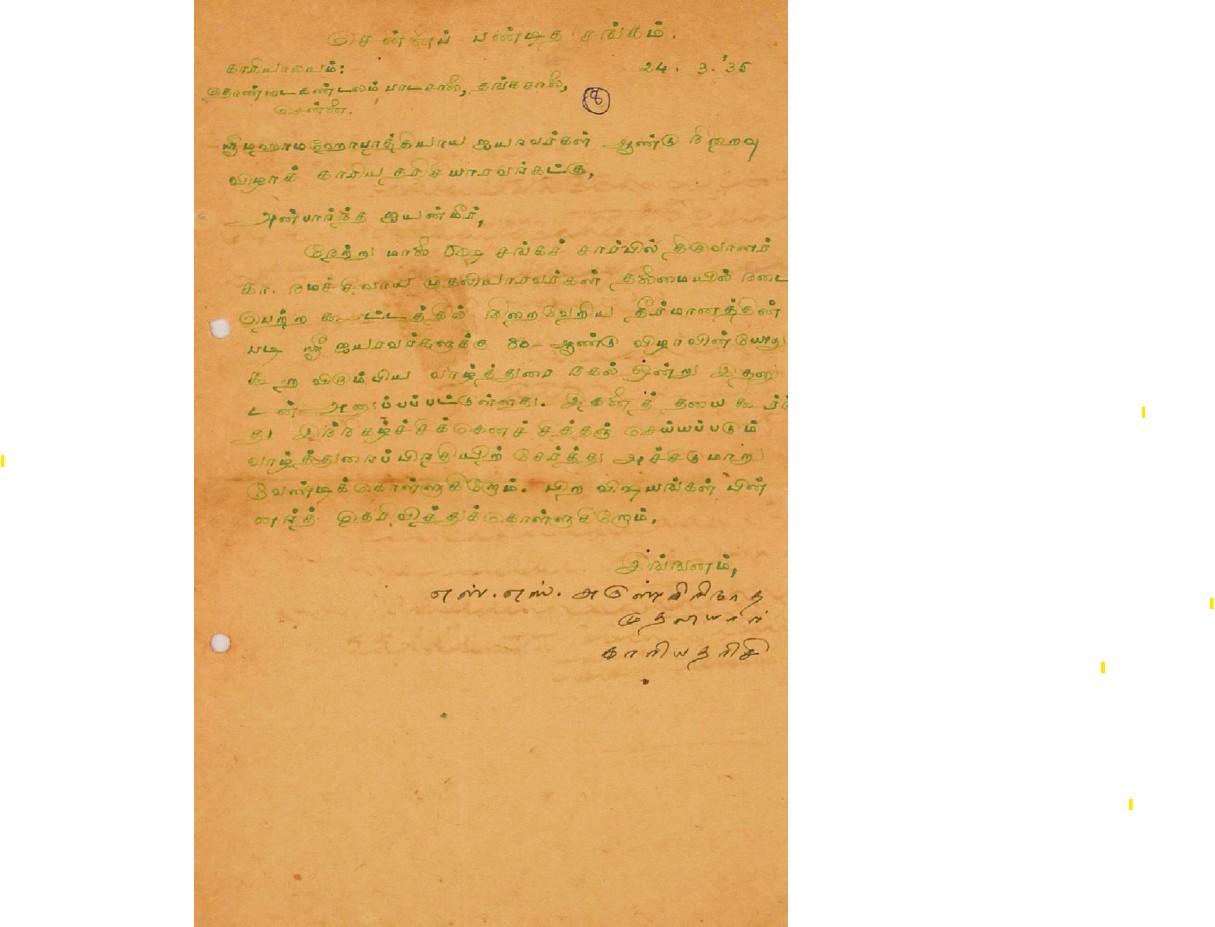 சென்னைப் பண்டித சங்கம்.
காரியாலயம்:
24.3.'35
தொண்டைமண்டலம் பாடசாலை, தங்கசாலை,
8
சென்னை.
ஸ்ரீமஹாமஹோபாத்தியாய ஐயரவர்கள் ஆண்டு நிறைவு
விழாக் காரியதரிசியாரவர்கட்கு,
அன்பார்ந்த ஐயன்மீர்,
நேற்று மாலை சங்கச் சார்பில் திருவாளர்
கா. நமச்சிவாய முதலியாரவர்கள் தலைமையில் நடை
பெற்ற கூட்டத்தில் நிறைவேறிய தீர்மானத்தின்
படி ஸ்ரீ ஐயரவர்களுக்கு 80-ஆண்டு விழாவின்போது
கூற விரும்பிய வாழ்த்துரை நகல் ஒன்று இதனு
டன் அனுப்பப்பட்டுள்ளது. இதனைத் தயை கூர்ந்
து இந்நிகழ்ச்சிக்கெனச் சித்தஞ் செய்யப்படும்
வாழ்த்துரைப் பிரதியிற் சேர்த்து அச்சிடுமாறு
வேண்டிக்கொள்ளுகிறோம். பிற விஷயங்கள் பின்
னர்த் தெரிவித்துக்கொள்ளுகிறோம்.
இங்ஙனம்,
எஸ். எஸ். அருணகிரிநாத
முதலியார்
காரியதரிசி